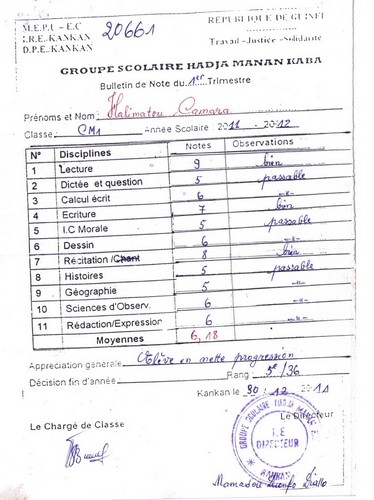 M.E.P.U - E.C
I.R.E. KANKAN
D.P.E. KANKAN
20661
REPUBLIQUE DE GUINEE
Travail - Justice - Solidarité
GROUPE SCOLAIRE HADJA MANAN KABA
Bulletin de Note du 1er Trimestre
Prénoms et Nom : Halimatou Camara
Classe : CM1 Année Scolaire 2011 - 2012
N° Disciplines Notes Observations
1 Lecture 9 bien
2 Dictée et question 5 passable
3 Calcul écrit 6 -"-
4 Ecriture 7 bien
5 I.C Morale 5 passable
6 Dessin 6 -"-
7 Récitation / Chant 8 bien
8 Histoires 5 passable
9 Géographie 5 -"-
10 Sciences d'Observ. 6 -"-
11 Rédaction/Expression 6 -"-
Moyennes 6,18
Appreciation generale Elève en nette progression
Décision fin d'année Rang : 5e/36
Kankan le 30 12 2011
Le Chargé de Classe
Le Directeur
GROUPE SCOLAIRE HADJA MANAN
I.E
DIRECTEUR
KANKAN
Mamadou Diallo